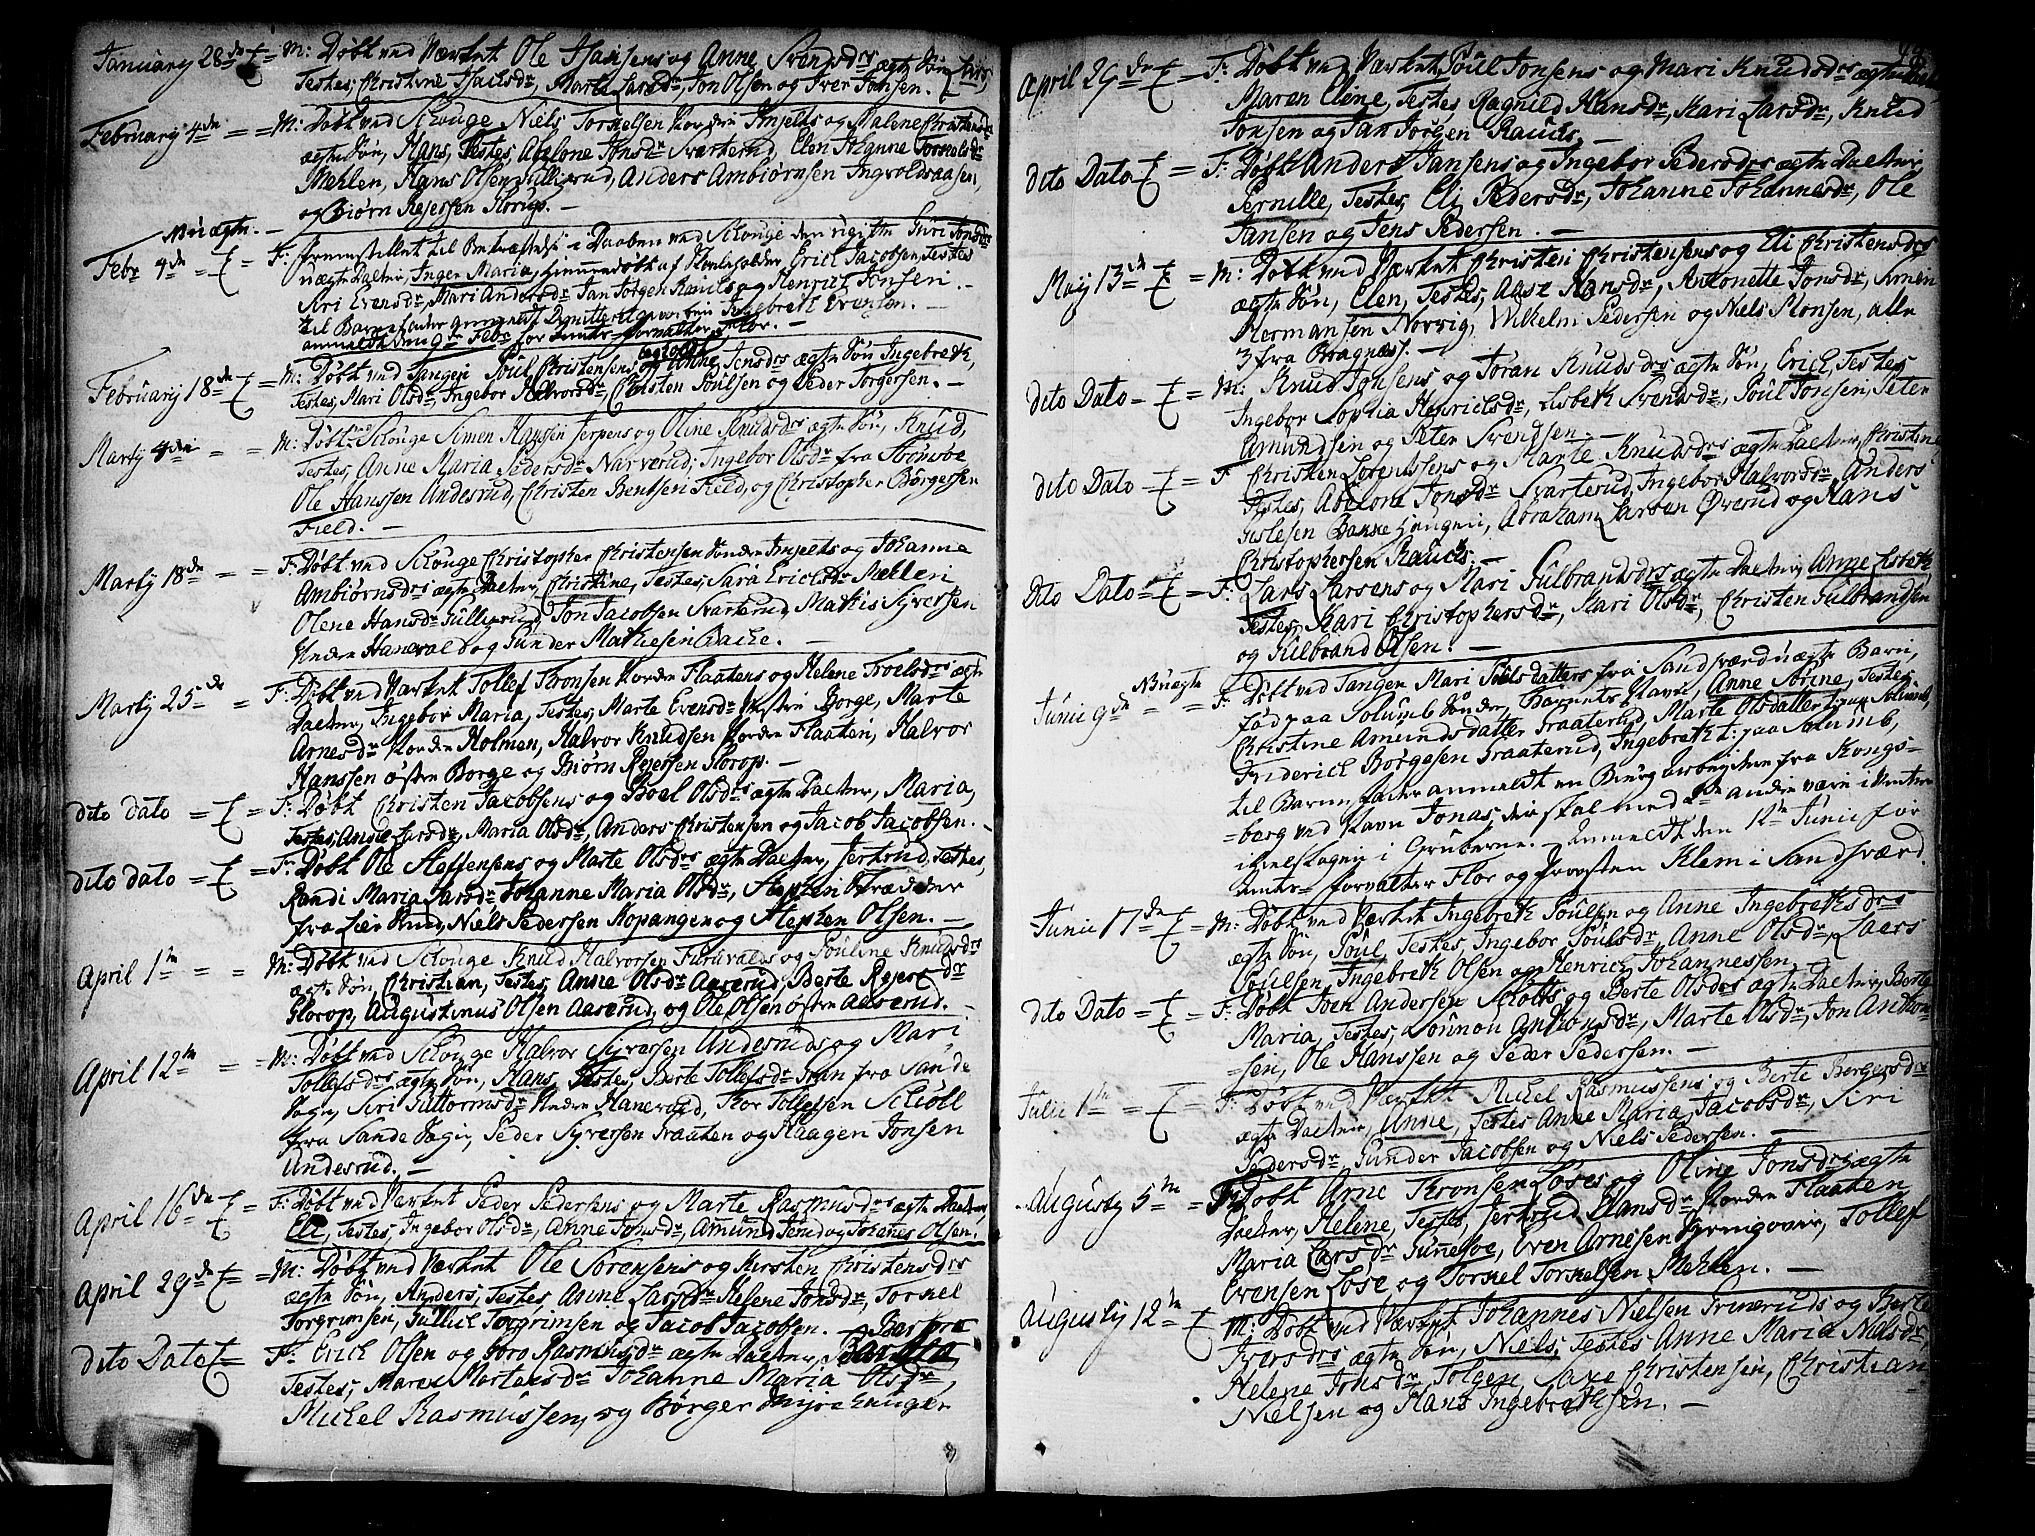 January 28de E = M: Døbt ved Værket Ole Hansens og Anne Svensdrs ægte Søn, Iver,
Testes, Christine Jsachsdr, Marte Larsdr, Jon Olsen og Iver Jonsen.
February 4de = = M: Døbt ved Schouge Niels Torkelsen Nordre Impelts og Malene Christensdr
ægte Søn, Hans, Testes, Abelone Jonsdr Svarterud, Elen Johanne Torkelsdr
Mehlen, Hans Olsen Gullierud, Anders Ambiørnsen Ingvoldsaasen,
og Biørn Rejersen Horrup. —
Nb: uægte. —
Febr 4de = E = F: fremstillet til Bekræftelse i Daaben ved Schouge den ugifte Guri Jonsdrs
uægte Datter, Inger Maria, hiemmedøbt af Erich Jacobsen, Testes
Siri Evensdr, Mari Andersdr, Jan Jørgen Rauchs og Henrich Jensen. —
til Barnefader anmeldt Ingebreth Evensen. —
anmeldt den 9de Febr for Amts-forvalter Flor. —
February 18de E = M: Døbt ved Tangen Poul Christensens og Anne Jensdrs ægte Søn Ingebreth,
Testes, Mari Olsdr, Ingebor Halvorsdr, Christen Poulsen og Peder Torgersen. —
Marty 4de = = M: Døbt ved Schouge Simen Hanssen Jerpens og Oline Knudsdrs ægte Søn, Knud,
Testes, Anne Maria Pedersdr Narverud, Ingebor Olsdr fra Strømsøe
Ole Hanssen Andesrud, Christen Bentsen Field, og Christopher Børgessen
Field. —
Marty 18de = = F: Døbt ved Schouge Christopher Christensen Søndre Impelts og Johanne
Ambiørnsdrs ægte Datter, Christine, Testes, Sara Erichsdr Møllen
Olene Hansdr Gullierud, Jon Jacobsen Svarterud, Mathis Syversen
Nedre Hanevold og Gunder Mathiesen Bache. —
Marty 25de = F: Døbt ved Værket Tollef Thronsen Nordre Flaatens og Helene Troelsdrs ægte
Datter, Ingebor Maria, Testes, Marte Evensdr Vestre Borge, Marte
Arnesdr Nordre Holmen, Halvor Knudsen Nordre Flaaten, Halvor
Hanssen østre Borge og Biørn Rejersen Horop. —
dito dato = E = F: Døbt Christen Jacobsens og Boel Olsdrs ægte Datter, Maria,
Testes, Anne Larsdr, Maria Olsdr, Anders Christensen og Jacob Jacobsen. —
dito dato = E = F: Døbt Ole Steffensens og Marte Olsdrs ægte Datter, Jertrud, Testes,
Randi Maria Larsdr, Johanne Maria Olsdr, Stephen
fra Lier, Niels Pedersen Kopangen og Stephen Olsen. —
April 1te = = M: Døbt ved Schouge Knud Halvorsen Furuvalds og Pouline Knudsdrs
ægte Søn, Christian, Testes, Anne Olsdr Aaserud, Berte Rejersdr
Horop, Augustinus Olsen Aaserud, og Ole Olsen østre Aaserud. —
April 12te = = M: Døbt ved Schouge Halvor Syversen Andesruds og Mari
Tollefsdrs ægte Søn, Hans, Testes, Berte Tollefsdr fra Sande
Sogn, Siri Guttormsdr Nedre Hanevold, Thor Tollefsen Schiøll
fra Sande Sogn, Peder Syversen Braaten og Haagen Jonsen
Andesrud. —
April 16de E = F: Døbt ved Værket Peder Pedersens og Marte Rasmusdrs ægte Datter,
Eli, Testes, Ingebor Olsdr, Anne Jonsdr, Amund og Johanes Olsen.
April 29de E = M: Døbt ved Værket Ole Sørensens og Kirsten Christensdrs
ægte Søn, Anders, Testes, Anne Larsdr, Helene Jonsdr, Torkel
Torgrimsen, Gullich Torgrimsen og Jacob Jacobsen. —
dito Dato E = F: Erich Olsen og Goro Rasmusdr ægte Datter, Barbra
Testes, Maren Mortensdr, Johanne Maria Olsdr,
Michel Rasmussen, og Børger
April 29de E = F: Døbt ved Værket Poul Jonsens og Mari Knudsdrs ægte Datter
Maren Eline, Testes Ragnild Hansdr, Kari Larsdr, Knud
Jonsen og Jan Jørgen Rauchs. —
dito Dato E = F: Døbt Anders Jansens og Ingebor Pedersdrs ægte Datter
Pernille, Testes, Eli Pedersdr, Johanne Johannesdr, Ole
Jansen og Jens Pedersen. —
May 13de E = M: Døbt ved Værket Christen Christensens og Eli Christensdrs
ægte Søn, Elen, Testes, Aase Hansdr, Antonette Jonsdr, Simen
Hermansen Norvig, Wilhelm Pedersen og Niels Monsen, alle
3 fra Bragnæs. —
dito Dato = E = M: Knud Jonsens og Joran Knudsdrs ægte Søn, Erich, Testes,
Ingebor Sophia Henrichsdr, Lisbeth Svensdr, Poul Jonsen, Peter
Amundsen og Peter Svendsen. —
dito Dato = E = F Christen Lorentsens og Marte Knudsdrs ægte Datter, Christine,
Testes, Abelone Jonsdr Svarterud, Ingebor Halvorsdr, Anders
Gislesen, Abraham Larsen Øverud og Hans
Christophersen Rauchs. —
Dito Dato = E = F: Lars Larsens og Mari Gulbrandsdrs ægte Datter, Anne Lisbeth
Testes, Kari Christophersdr, Mari Olsdr, Christen Gulbrandsen
og Gulbrand Olsen. —
Nb: uægte
Junii 9de = = F: Døbt ved Tangen Mari Poulsdatters fra Sandsværd uægte Barn,
fød paa Solumb Søndre, Barnets Navn, Anne Sørine, Testes,
Christine Amundsdatter Graaterud, Marte Olsdatter paa Solumb,
Friderich Børgesen Graaterud, Ingebreth paa Solumb,
til Barne fader anmeldt en Biergarbeyder fra Kongs=
=berg ved Navn Jonas, der skal med 2de andre være
ihielslagen i Gruberne. — Anmeldt den 12te Junii for
Amts=forvalter Flor og Provsten Klem i Sandsværd.
Junii 17de E = M: Døbt ved Værket Ingebreth Poulsen og Anne Ingebrethsdrs
ægte Søn, Poul, Testes, Ingebor Poulsdr, Anne Olsdr, Laers
Poulsen, Ingebreth Olsen og Henrich Johannessen.
dito Dato = E = F: Døbt Joen Andersen Schotts og Berte Olsdrs ægte Datter, Berte
Maria, Testes, Gunnou Anthonsdr, Marte Olsdr, Jon Anthon=
=sen, Ole Hanssen og Peder Pedersen. —
Julii 1te = E = F: Døbt ved Værket Michel Rasmussens og Berte Børgersdrs
ægte Datter, Anne, Testes Anne Maria Jacobsdr, Siri
Pedersdr, Gunder Jacobsen og Niels Pedersen. —
Augusty 5te = F: Døbt Arne Thronsen Løses og Oline Jonsdrs ægte
Datter, Helene, Testes, Jertrud Hansdr Nordre Flaaten
Maria Larsdr Gunnesøe, Even Arnesen, Tollef
Evensen Løse og Torkel Torkelsen Mehlen. —
Augusty 12te E M: Døbt ved Værket Johannes Nielsen Gruveruds og Berte
Iversdrs ægte Søn, Niels, Testes Anne Maria Nielsdr,
Helene Jonsdr, Tolgen, Saxe Christensen, Christian
Nielsen og Hans Ingebrethsen. —